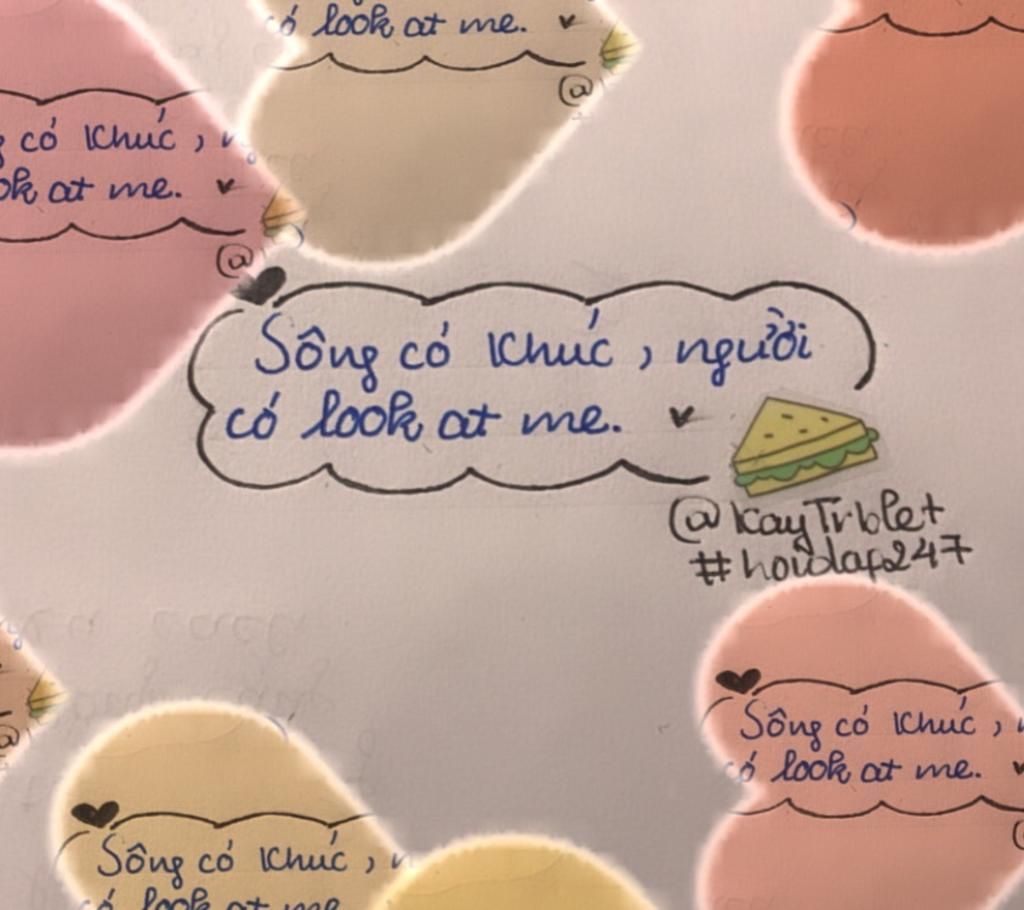 có look at me.
@
g có Khúc,
ok at me.
@
Sông có Khúc, người
có look at me.
@KayTrblet
Sông có Khúc,
có look at me.
@
Sông có Khúc,
có look at me